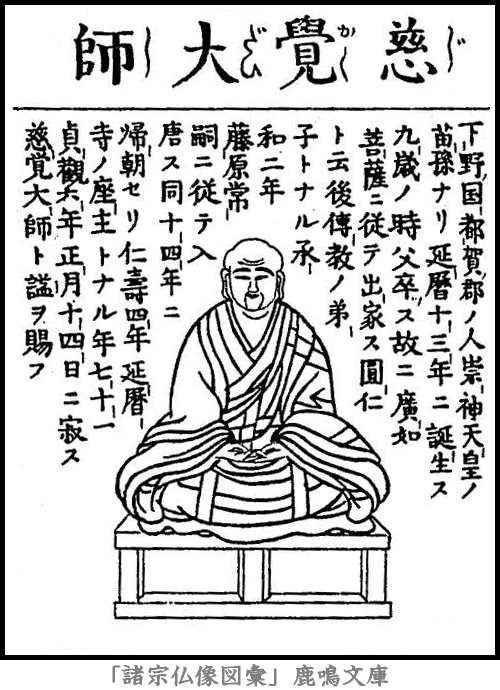 慈覺大師
じかくだいし
下野国都賀郡ノ人崇神天皇ノ
苗孫ナリ延暦十三年ニ誕生ス
九歳ノ時父卒ス故ニ廣如
菩薩ニ従テ出家ス圓仁
ト云後傳教ノ弟
子トナル承
和二年
藤原常
嗣ニ従テ入
唐ス同十四年ニ
帰朝セリ仁壽四年延暦
寺ノ座主トナル年七十一
貞觀六年正月十四日ニ寂ス
慈覚大師ト謚ヲ賜フ
「諸宗仏像図彙」鹿鳴文庫